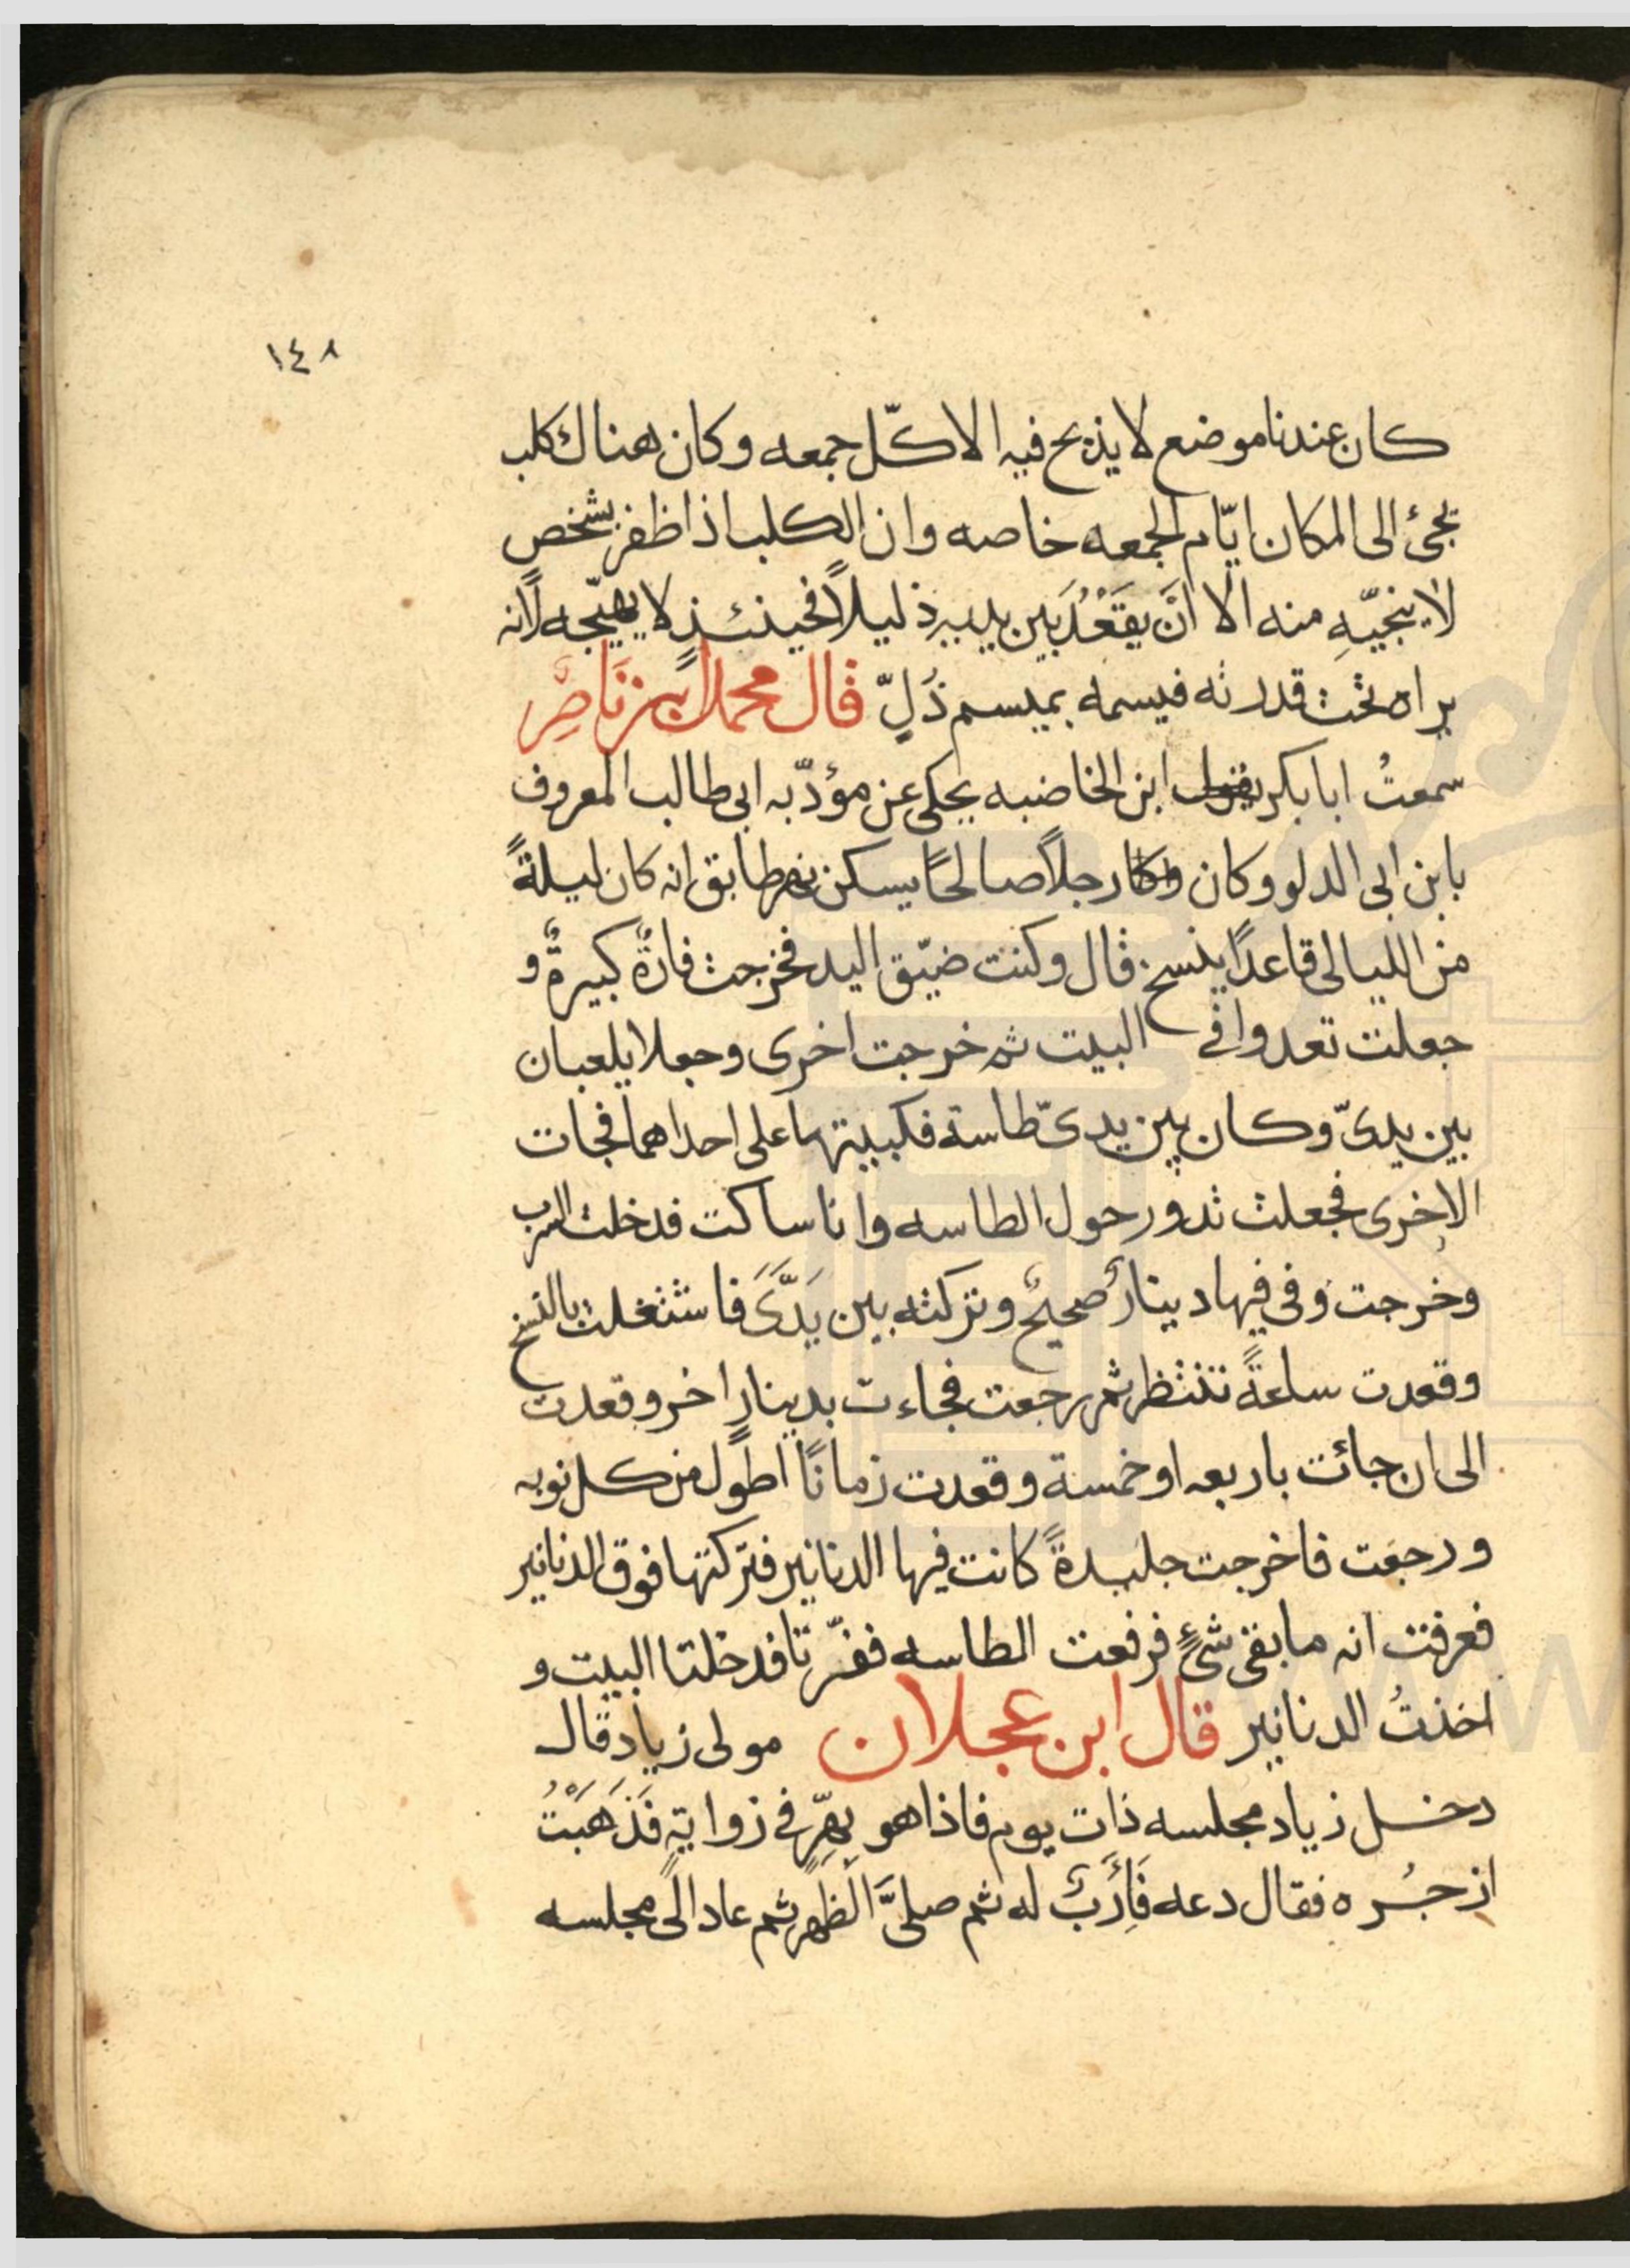 ١٤٨
كان عندنا موضع لا يذبح فيه الا كلّ جمعه وكان هناك كلب
يجئ الى المكان ايّام الجمعه خاصه وان الكلب اذا ظفر بشخص
لا ينجيّهِ منه الا انَّ يقَعُدَ بَين يديه ذليلاً فحينئذٍ لا يهيّجه لانه
يراه تحت قدرته فيسمه بميسم ذُلٍّ قال محمد ابن نَاصِر
سمعتُ ابا بكر يقول ابن الخاضبه يحكى عن مؤدّبه ابى طالب المعروف
بابن ابى الدلو وكان وكان رجلاً صالحًا يسكن نهر طابق انه كان ليلةً
من الليالى قاعدًا ينسخ قال وكنت ضيّق اليد فخرجت فارةٌ كبيرةٌ و
جعلت تعدوا فى البيت ثم خرجت اخرى وجعلا يلعبان
بين يدىّ وكان بين يدىّ طاسة فكببتها على احداهما فجات
الاخرى فجعلت تدور حول الطاسه وانا ساكت فدخلت السرب
وخرجت وفى فيها دينارٌ صحيحٌ وتركته بين يَدَّىَ فاشتغلت بالنسخ
وقعدت ساعةً تنتظر ثم رجعت فجاءت بدينارٍ اخر وقعدت
الى ان جائت باربعه او خمسة وقعدت زمانًا اطول من كل نوبه
ورجعت فاخرجت جليدةً كانت فيها الدنانير فتركتها فوق الدنانير
فعرفت انه ما بقى شئٌ فرفعت الطاسه ففرّتا فدخلتا البيت و
اخذتُ الدنانير قال ابن عجلان مولى زياد قال
دخل زياد مجلسه ذات يوم فاذا هو بهِرٍّ فى زوايةٍ فَذَهَبْتُ
ازجُره فقال دعه له ثم صلىَّ الظهر ثم عاد الى مجلسه